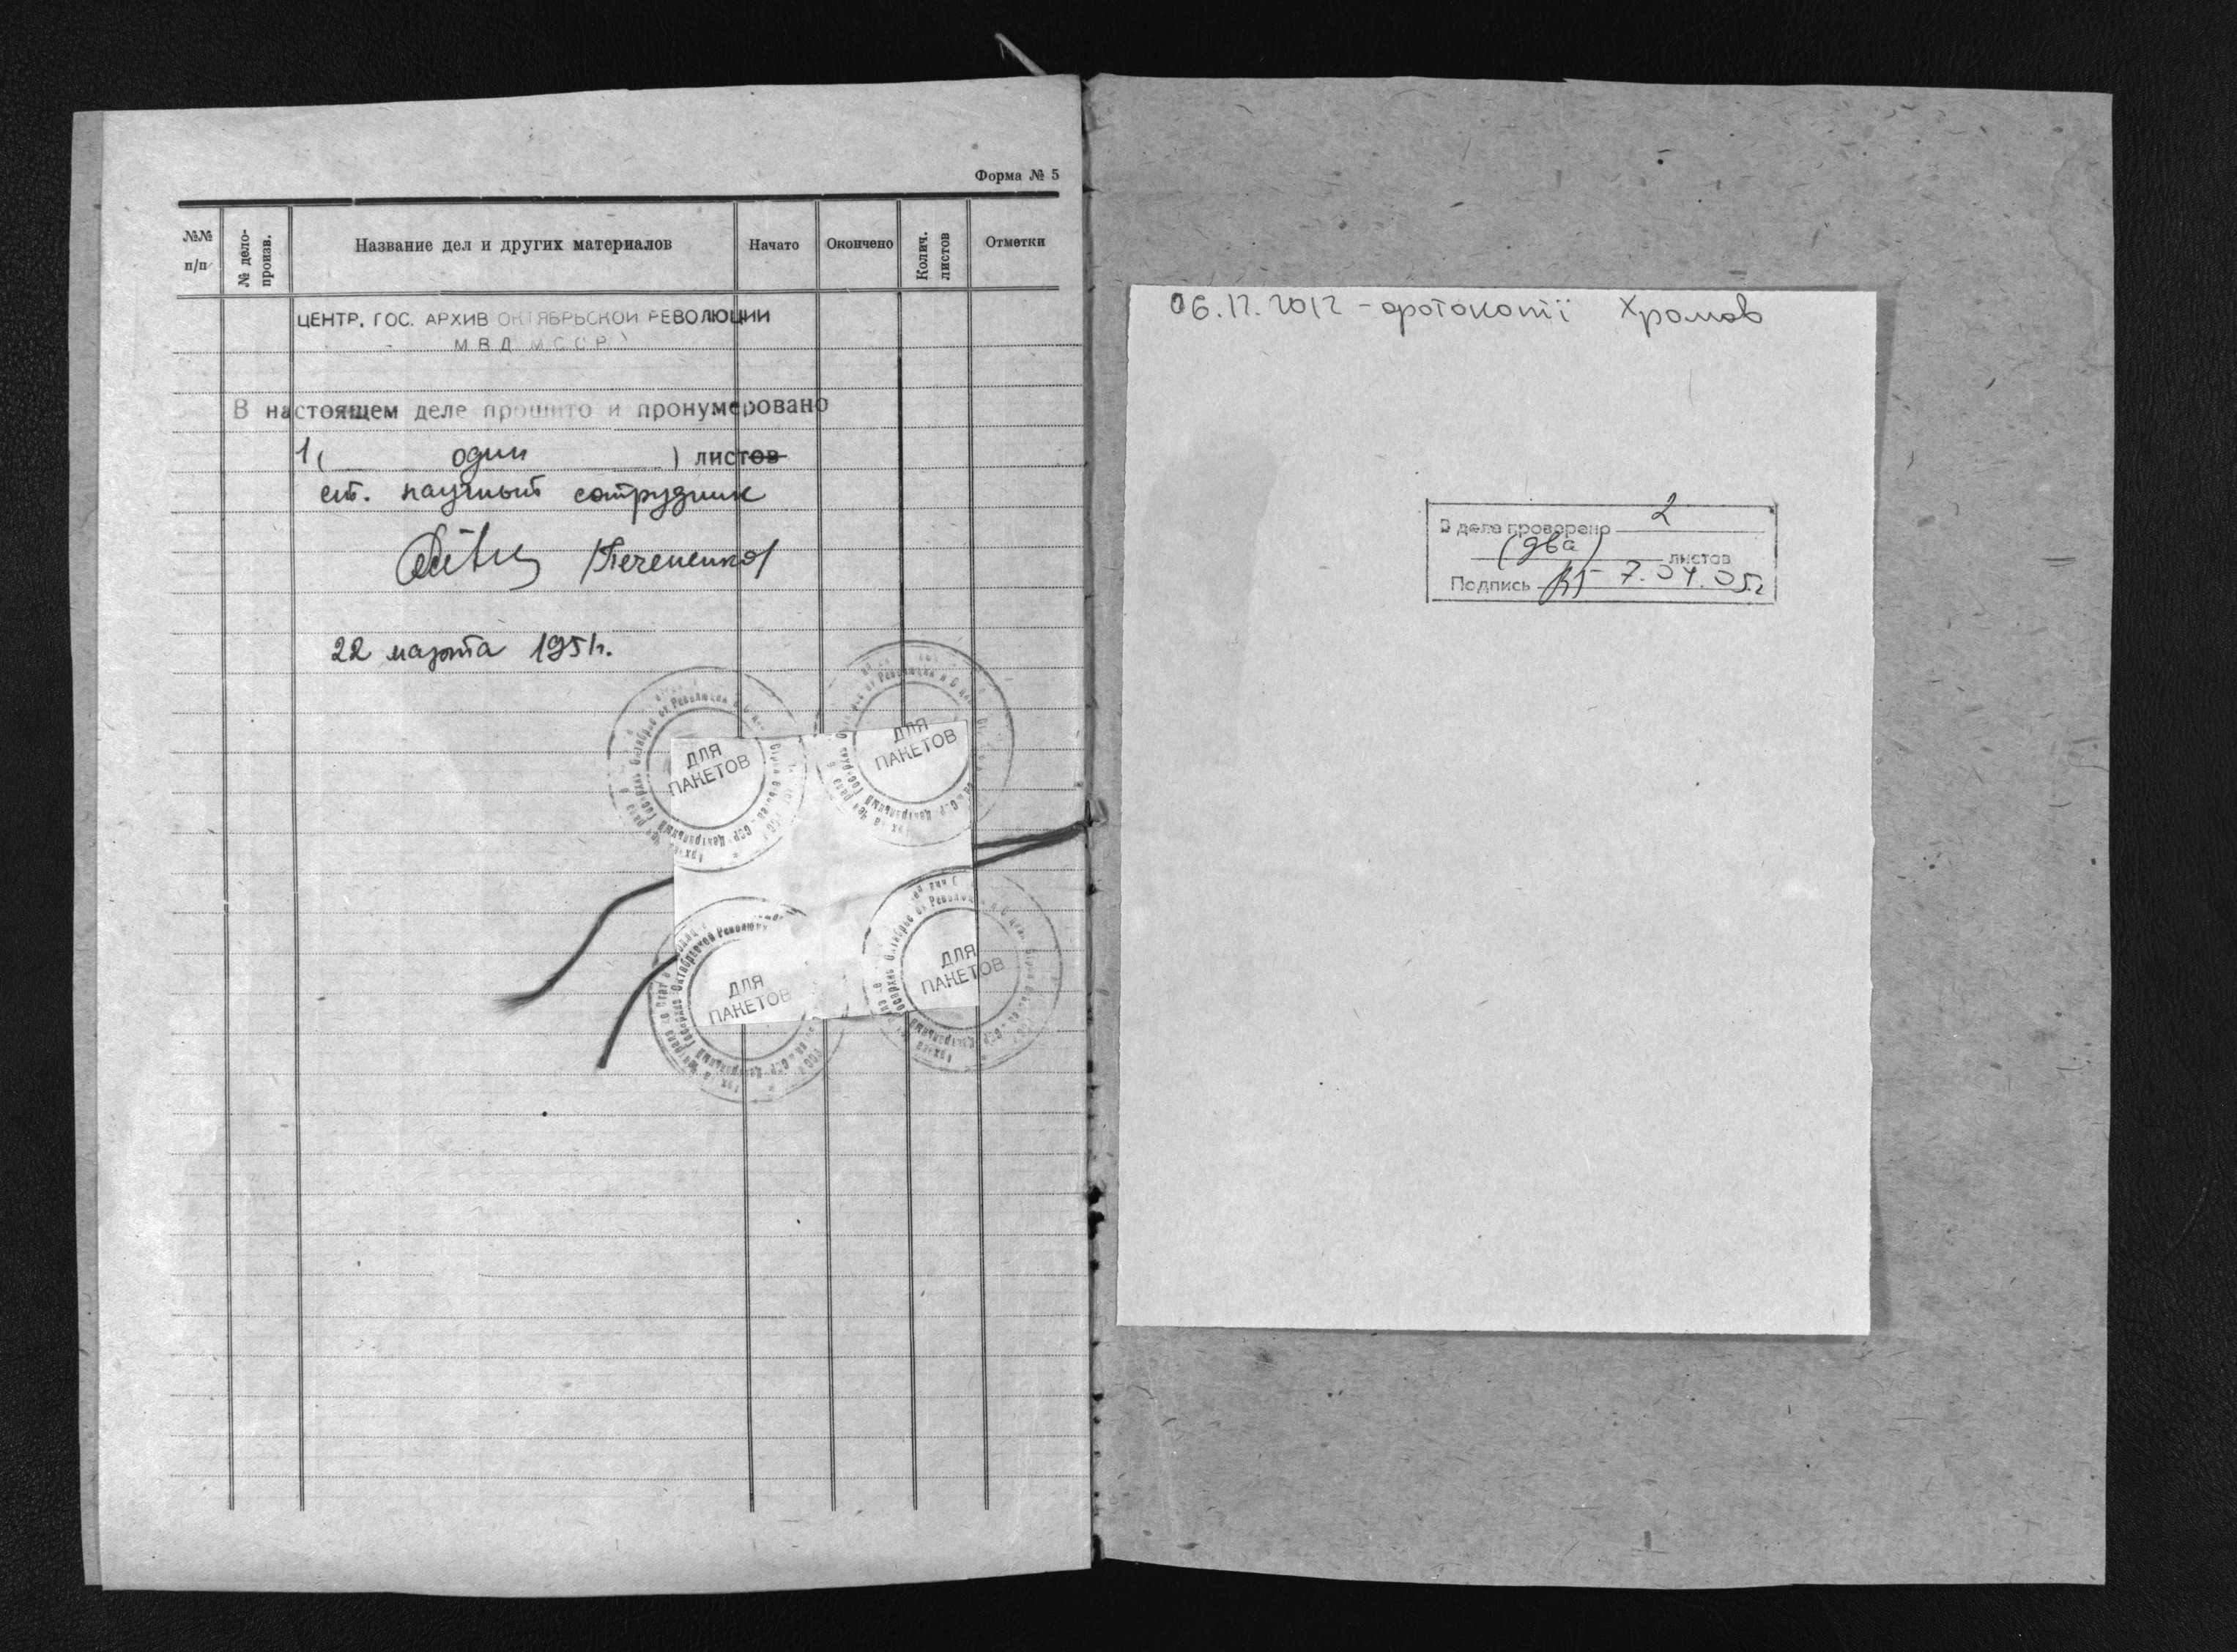 Форма № 5
№№ п/п
№ дело-произв.
Название дел и других материалов
Начато
Окончено
Колич. листов
Отметки
ЦЕНТР. ГОС. АРХИВ ОКТЯБРЬСКОЙ РЕВОЛЮЦИИ
МВД
В настоящем деле прошито и пронумеровано
1 ( один ) листов
ст. научный сотрудник
22 марта 1951г.
ДЛЯ
ПАКЕТОВ
ДЛЯ
ПАКЕТОВ
ДЛЯ
ПАКЕТОВ
ДЛЯ
ПАКЕТОВ
06.12.2012 - фотокопії Хромов
В деле проверено 2
(два) листов
Подпись 7.04.05г